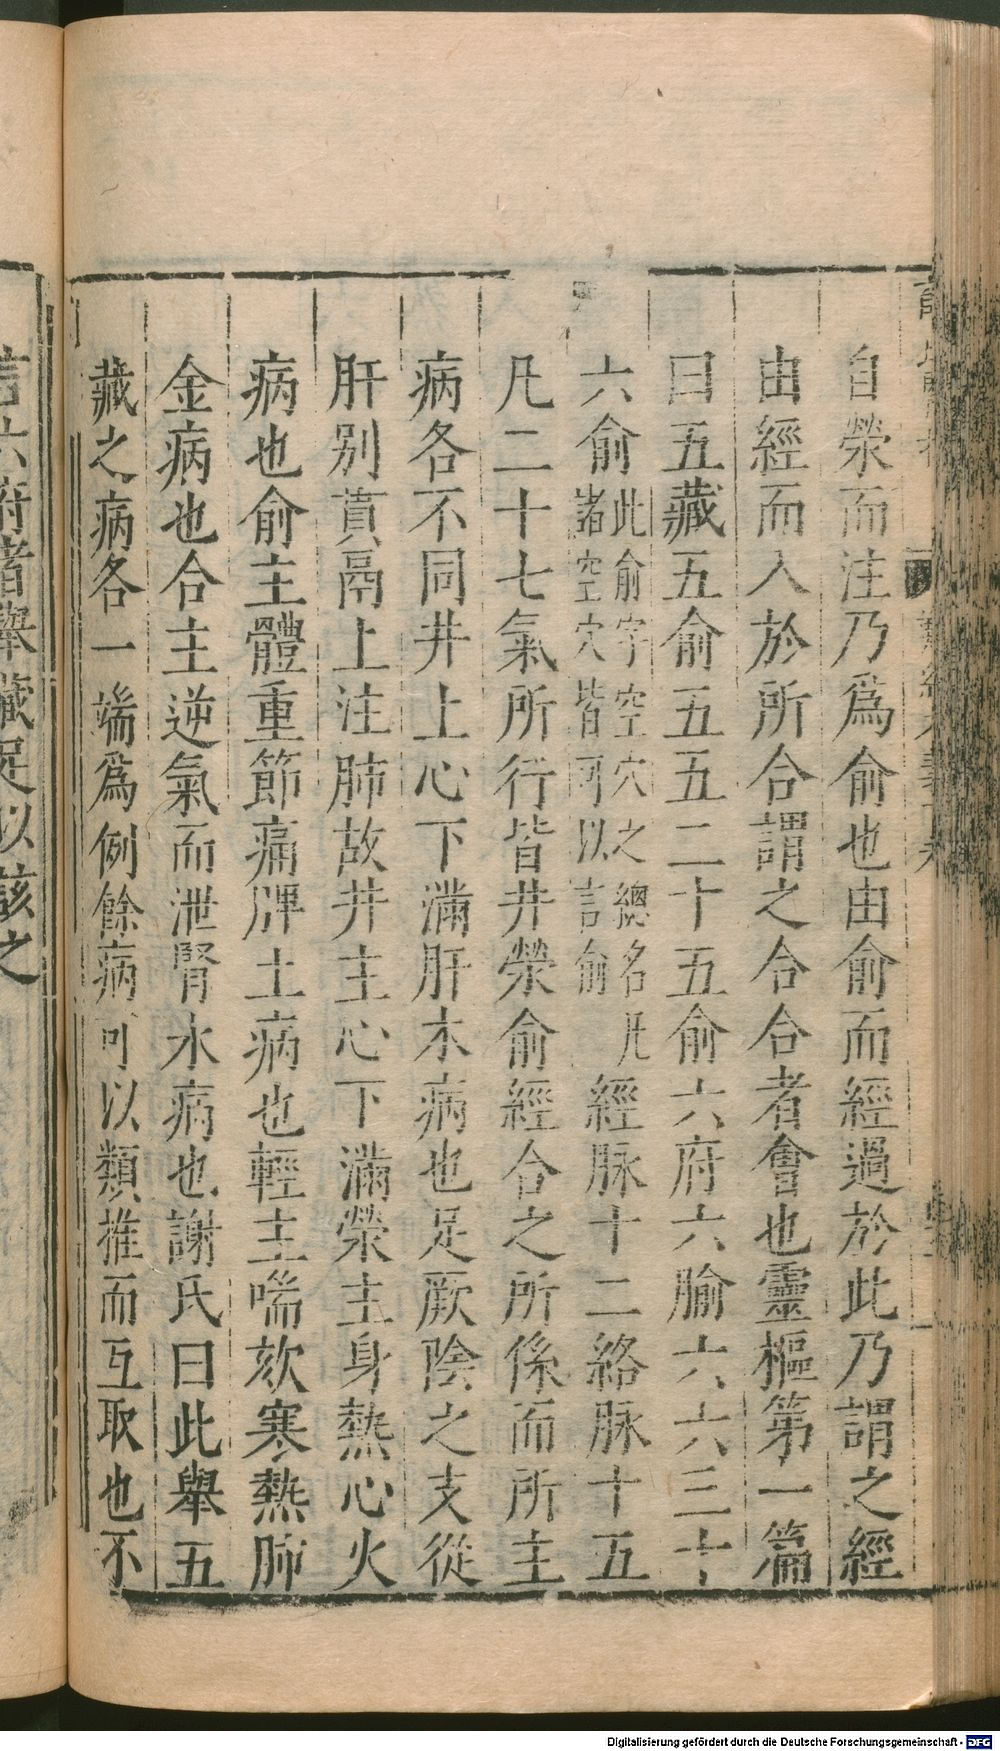 自滎而注乃爲俞也由俞而經過於此乃謂之經
由經而入於所合謂之合合者會也靈樞第一篇
曰五藏五俞五五二十五俞六府六腧六六三十
六俞此俞字空穴之總名凡諸空穴皆可以言俞經脉十二絡脉十五
凡二十七氣所行皆井滎俞經合之所係而所主
病各不同井上心下滿肝木病也足厥陰之支從
肝别貫鬲上注肺故井主心下滿滎主身熱心火
病也俞主體重節痛脾土病也輕主喘欬寒熱肺
金病也合主逆氣而泄腎水病也謝氏曰此舉五
藏之病各一端爲例餘病可以類推而互取也不
言六府者舉藏足以該之
Digitalisierung gefördert durch die Deutsche Forschungsgemeinschaft - DFG